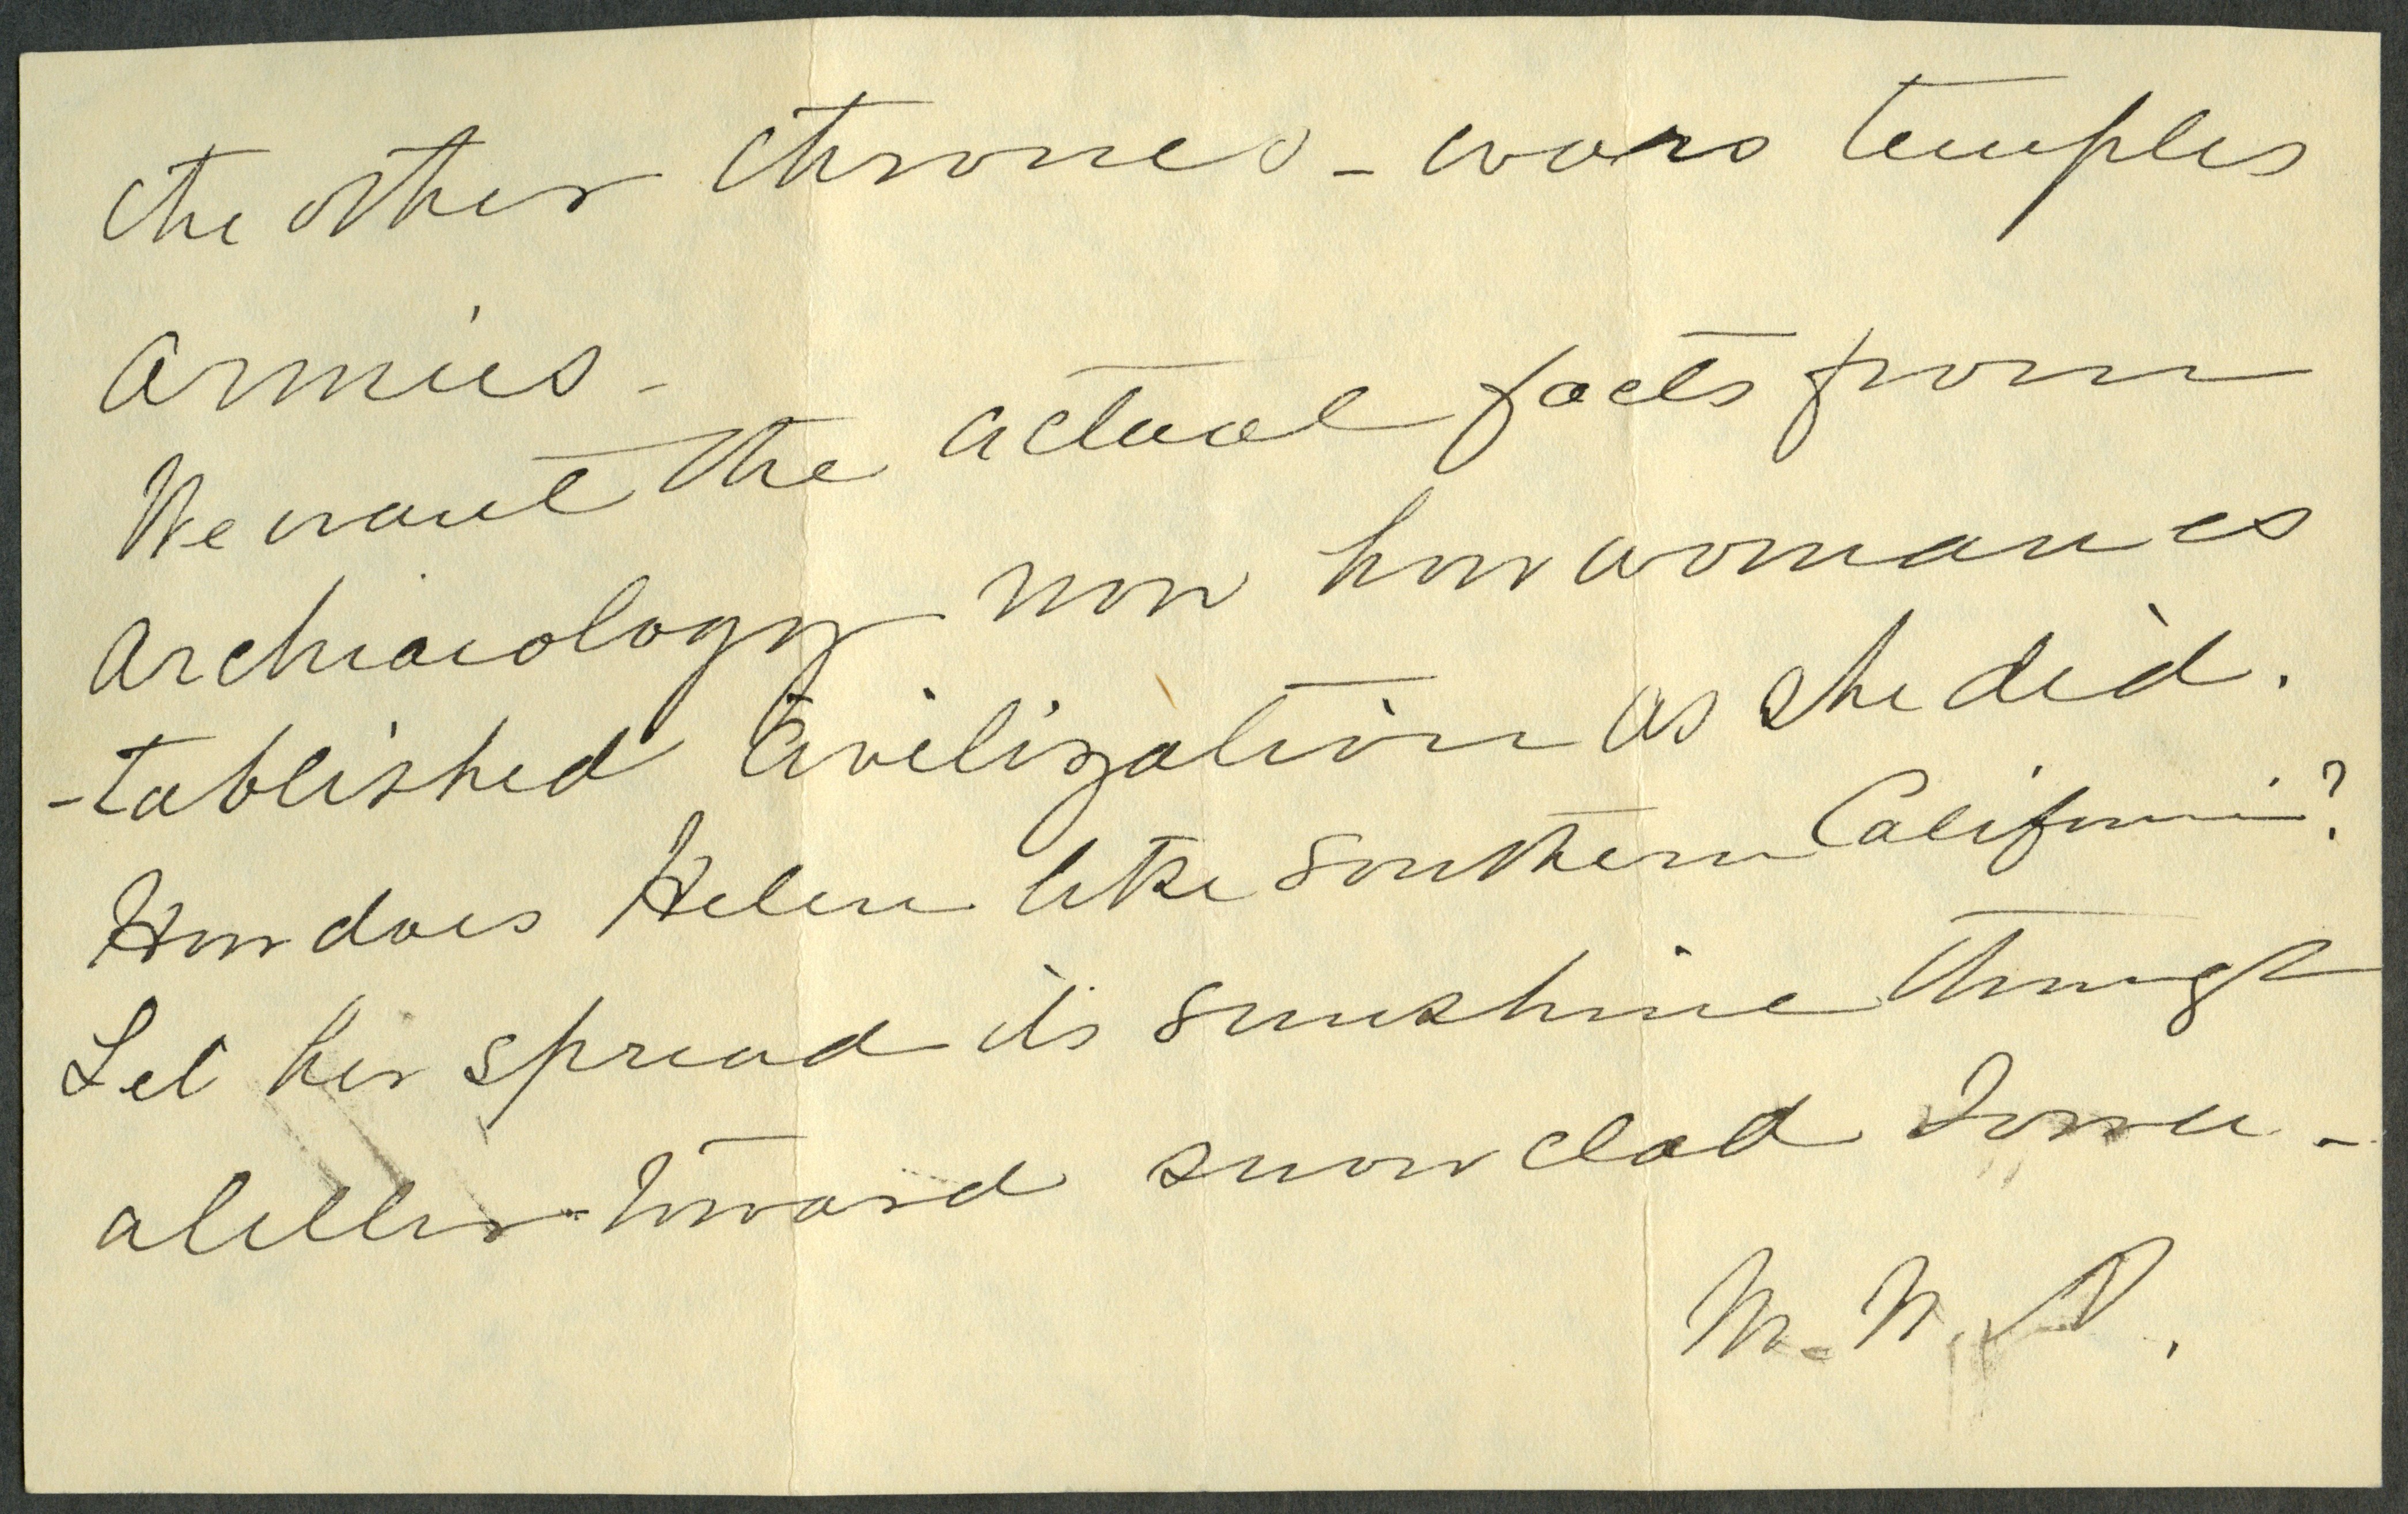 the other thrones - wars temples
armies -
We want the actual facts from
archiaeology now how woman es
-tablished civilization as she did.
How does Helen like southern California?
Let her spread its sunshine through
a letter toward snow clad Iowa -
M. N. A.